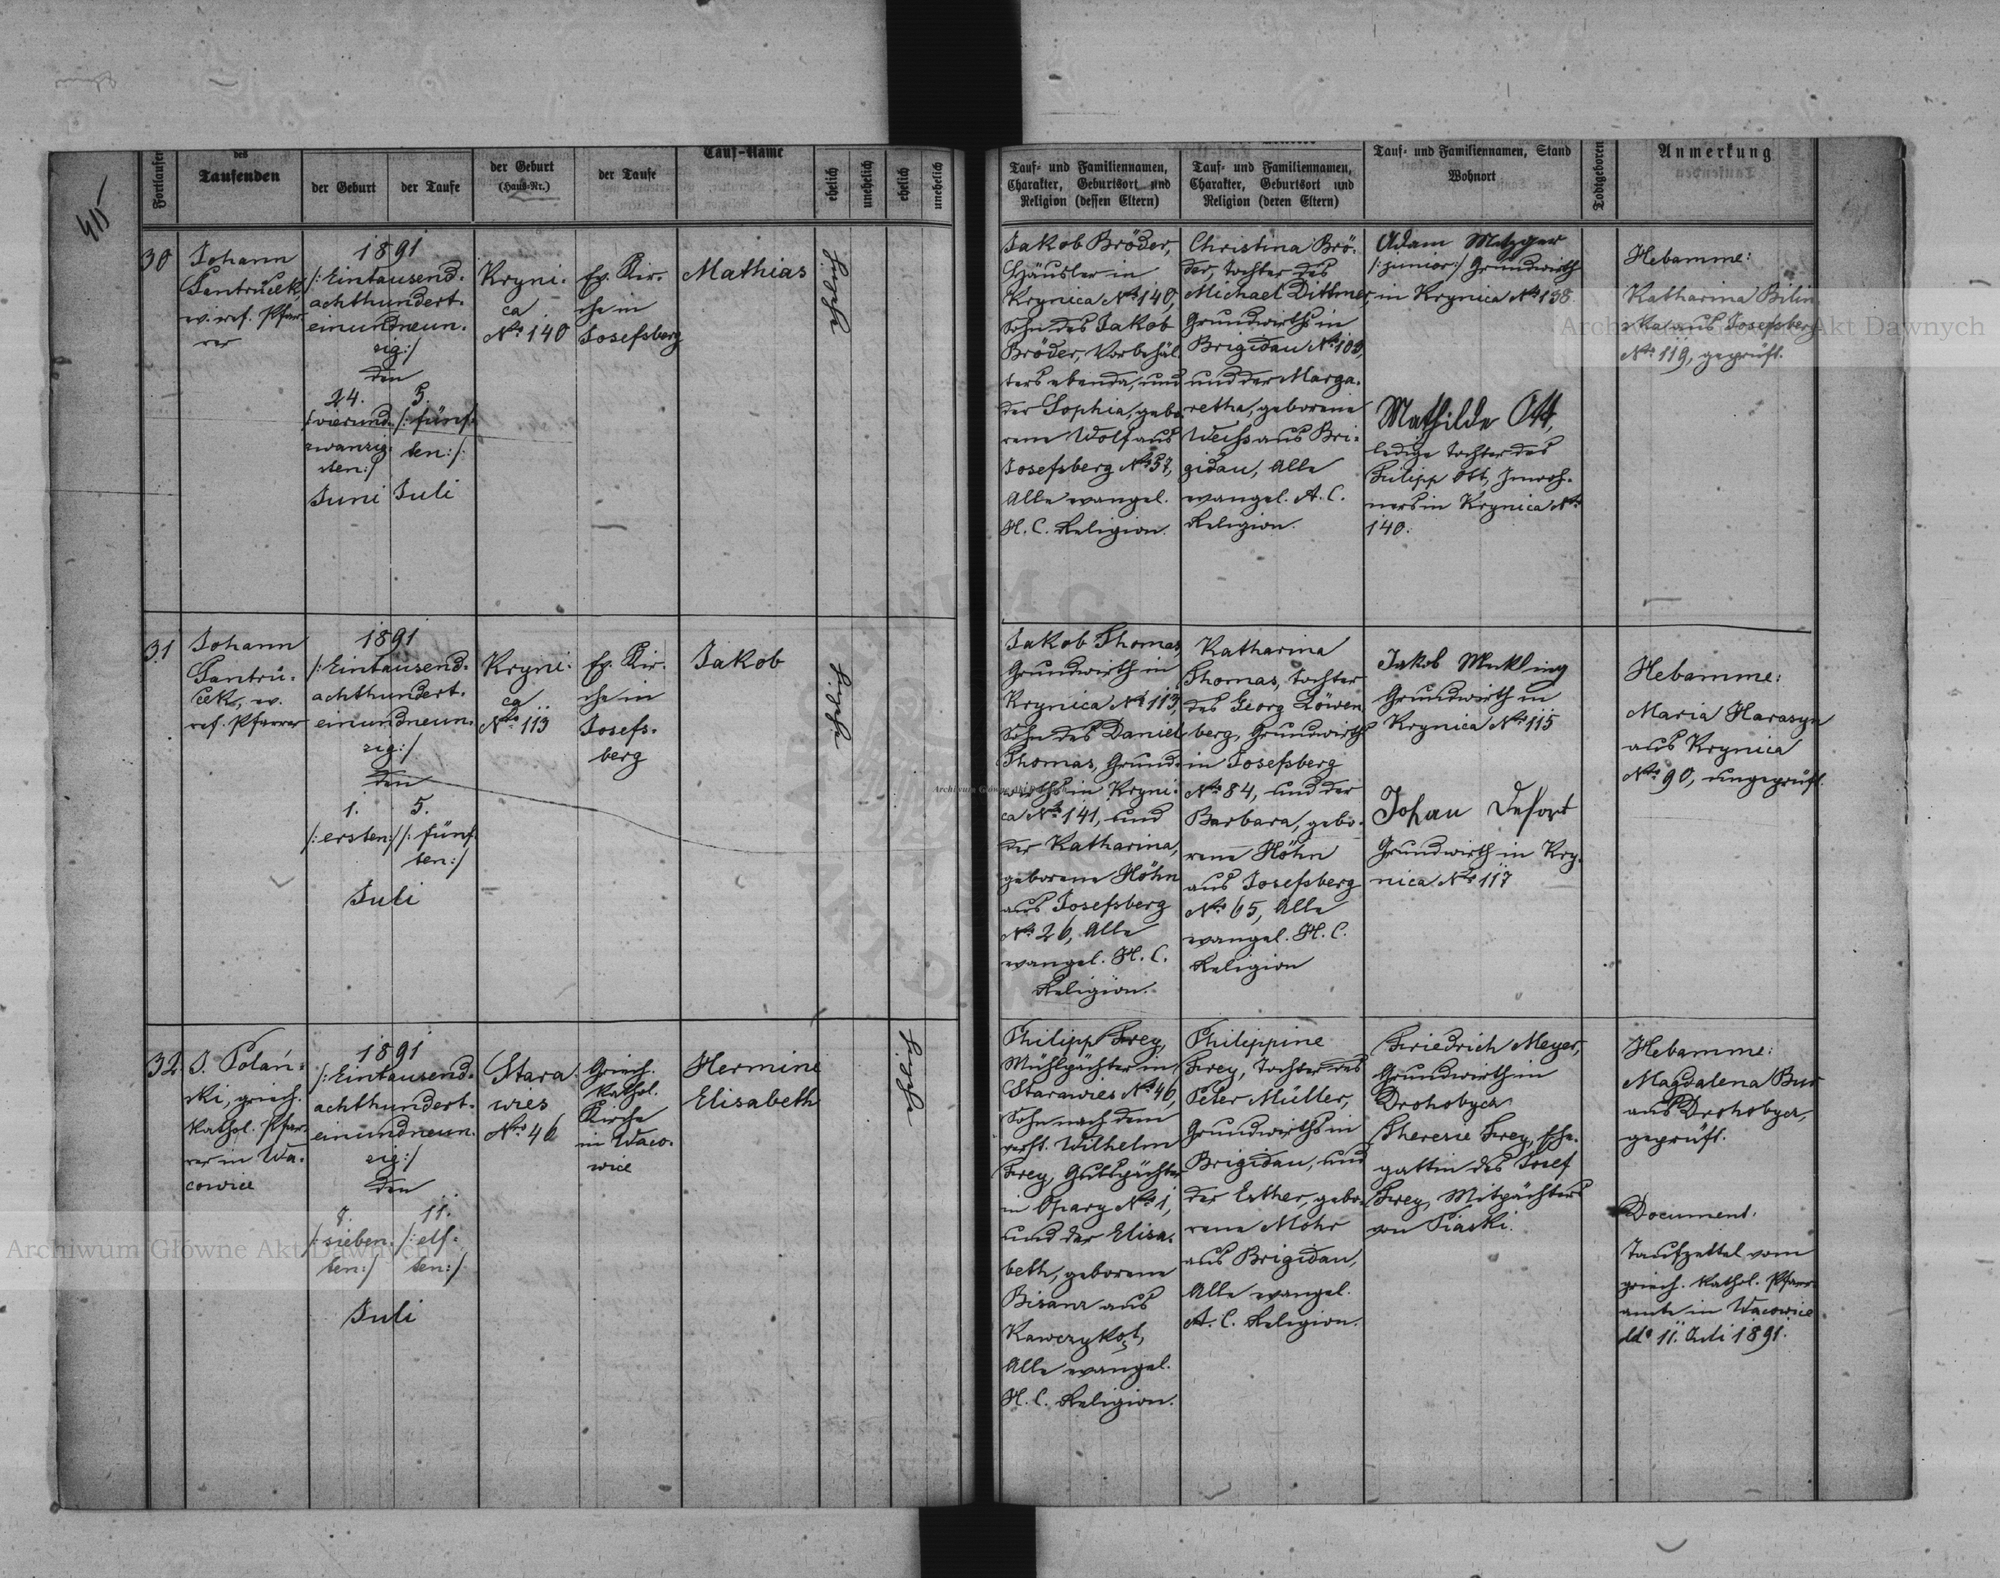 415
Fortlaufen
des
Taufenden
der Geburt
der Taufe
der Geburt
(Haus-Nr.)
der Taufe
Tauf-Name
ehelich
unehelich
ehelich
unehelich
Tauf- und Familiennamen,
Charakter, Geburtsort und
Religion (dessen Eltern)
Tauf- und Familiennamen,
Charakter, Geburtsort und
Religion (deren Eltern)
Tauf- und Familiennamen, Stand
Wohnort
Todtgeboren
Anmerkung
30
Johann
Pantruček,
ev. ref. Pfar-
rer
1891
/:Eintausend-
achthundert-
einundneun-
zig:/
den
24. 5.
/:vierund- /:fünf-
zwanzig- ten:/
sten:/
Juni Juli
Kryni-
ca
No 140
Ev. Kir-
che in
Josefsberg
Mathias
ehelich
Jakob Bröder,
Häusler in
Krynica No 140,
Sohn des Jakob
Bröder, Vorbehäl-
ters ebenda, und
der Sophia, gebo-
rene Wolf aus
Josefsberg No 57,
Alle evangel.
H. C. Religion.
Christina Brö-
der, Tochter des
Michael Dittmer
Grundwirths in
Brigidau No 109,
und der Marga-
retha, geborene
Weiß aus Bri-
gidau, Alle
evangel. A. C.
Religion.
Adam Metzger
/:junior:/ Grundwirth
in Krynica No 138.
Mathilde Ott,
ledige Tochter des
Filipp Ott, Inwoh-
ners in Krynica No
140.
Hebamme:
Katharina Bilin
ska aus Josefsberg
No 119, geprüft.
31
Johann
Pantru-
ček, ev.
ref. Pfarrer
1891
/:Eintausend-
achthundert-
einundneun-
zig:/
den
1. 5.
/:ersten:/ /:fünf-
ten:/
Juli
Kryni-
ca
No 113
Ev. Kir-
che in
Josefs-
berg
Jakob
ehelich
Jakob Thomas,
Grundwirth in
Krynica No 113,
Sohn des Daniel
Thomas, Grund-
wirths in Kryni-
ca No 141, und
der Katharina,
geborene Höhn
aus Josefsberg
No 26, Alle
evangel. H. C.
Religion.
Katharina
Thomas, Tochter
des Georg Löwen
berg, Grundwirth
in Josefsberg
No 84, und der
Barbara, gebo-
rene Höhn
aus Josefsberg
No 65, Alle
evangel. H. C.
Religion
Jakob Mekling
Grundwirth in
Krynica No 115
Johan Defort
Grundwirth in Kry-
nica No 117
Hebamme:
Maria Harasyn
aus Krynica
No 90, ungeprüft.
32
J. Polań-
ski, griech.
kathol. Pfar-
rer in Wa-
cowice
1891
/:Eintausend-
achthundert-
einundneun-
zig:/
den
7. 11.
/:sieben- /:elf-
ten:/ ten:/
Juli
Stara
wies
No 46
Griech.
kathol.
Kirche
in Waco-
wice
Hermine
Elisabeth
ehelich
Philipp Frey,
Mühlpächter in
Starawies No 46,
Sohn nach dem
verst. Wilhelm
Frey, Gutspächter
in Opary No 1,
und der Elisa-
beth, geborene
Bisanz aus
Kawczykąt,
Alle evangel.
H. C. Religion.
Philippine
Frey, Tochter des
Peter Müller,
Grundwirths in
Brigidau, und
der Esther, gebo-
rene Mohr
aus Brigidau,
Alle evangel.
A. C. Religion.
Friedrich Meyer,
Grundwirth in
Drohobycz
Therese Frey, Ehe-
gattin des Josef
Frey, Mitpächters
von Piaski.
Hebamme:
Magdalena Bur
aus Drohobycz,
geprüft.
Document:
Taufzettel vom
griech. kathol. Pfarr-
amte in Wacowice
ddo 11. Juli 1891.
Archiwum Główne Akt Dawnych
Archiwum Główne Akt Dawnych
Archiwum Główne Akt Dawnych